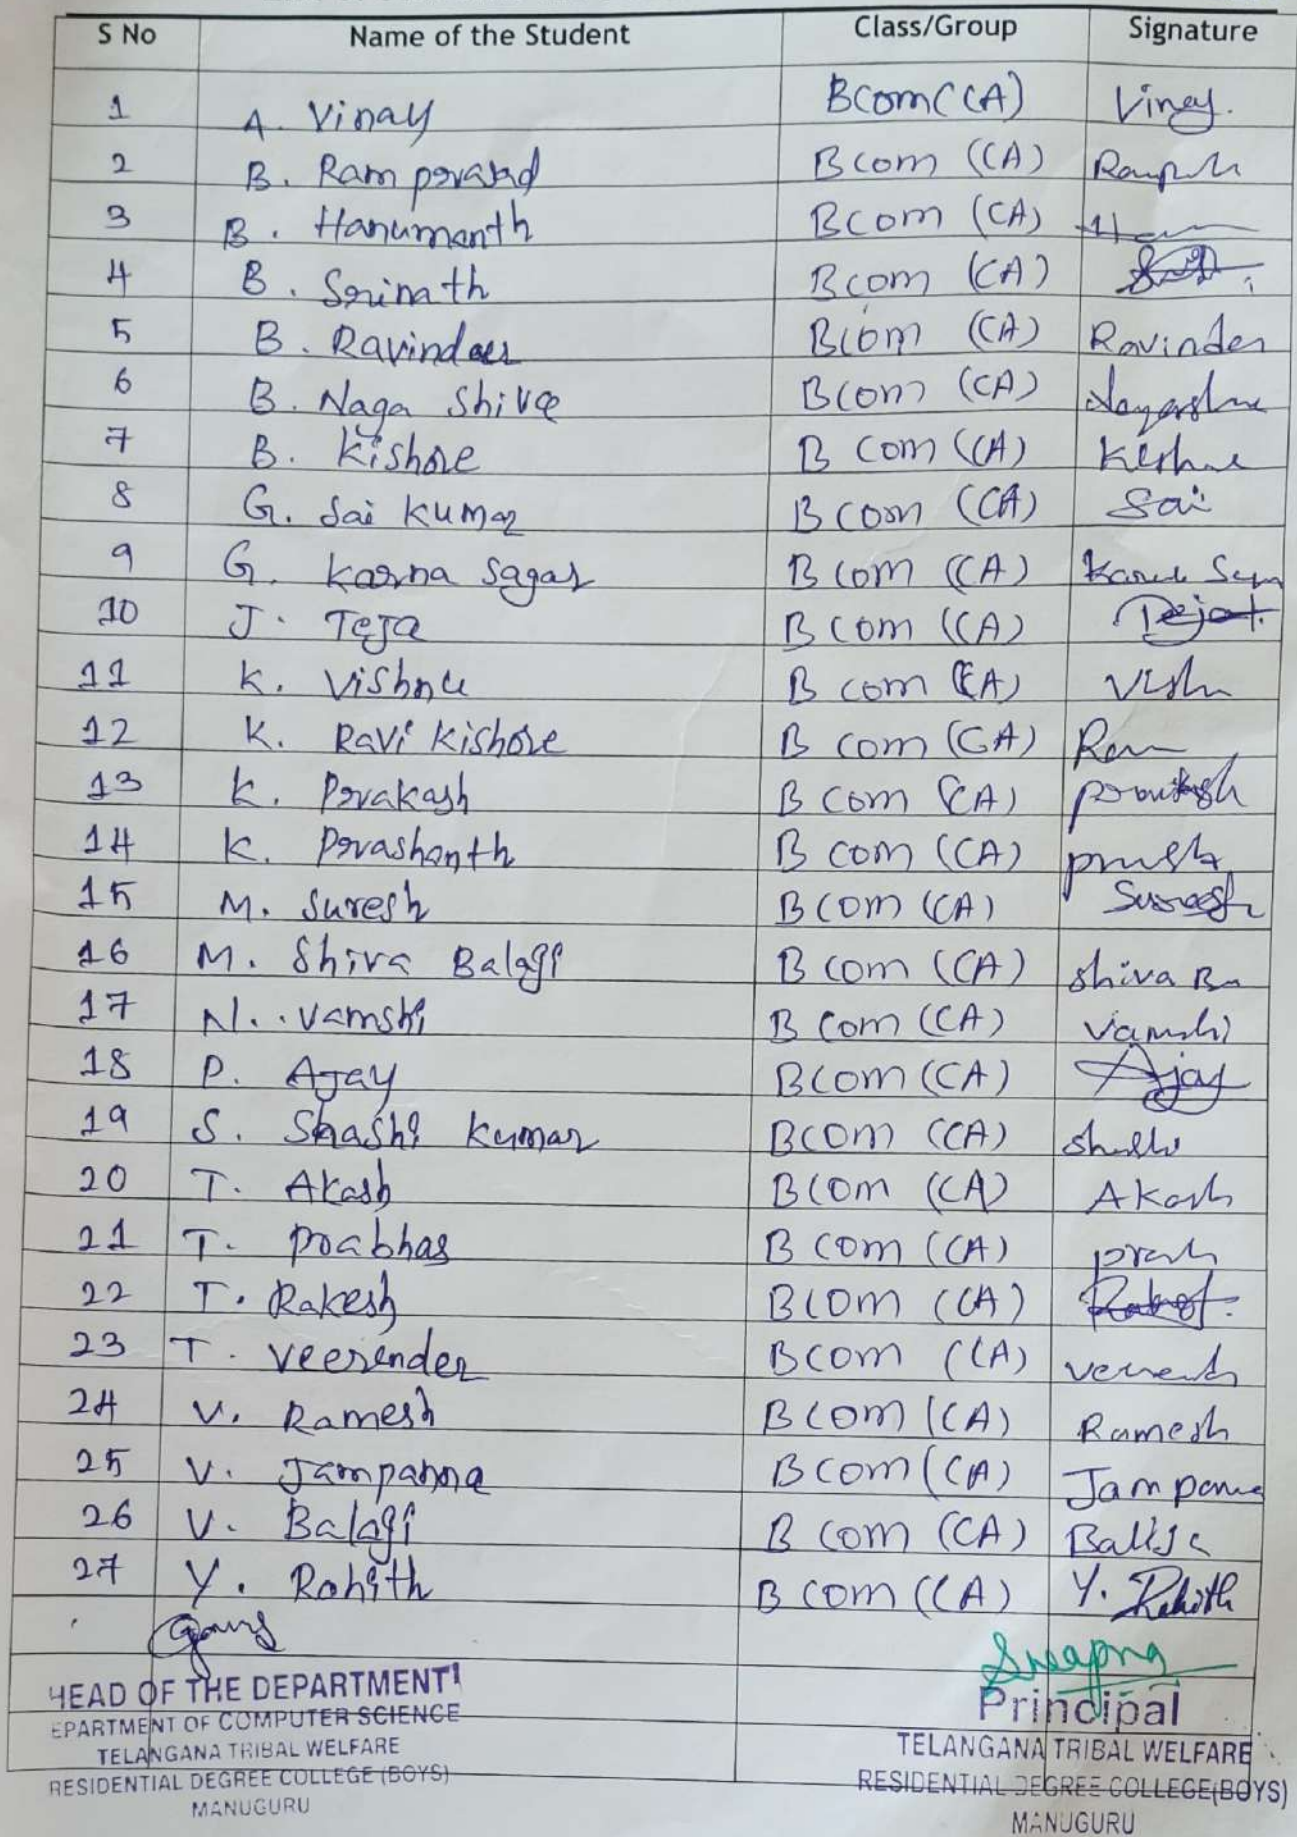 S No Name of the Student Class/Group Signature
1 A. Vinay Bcom(CA) Vinay.
2 B. Ram prasad Bcom (CA)
3 B. Hanumanth Bcom (CA)
4 B. Srinath Bcom (CA)
5 B. Ravinder Bcom (CA) Ravinder
6 B. Naga Shiva Bcom (CA)
7 B. Kishore B com (CA) Kishore
8 G. Sai Kumar B com (CA) Sai
9 G. Karna Sagar B com (CA)
10 J. Teja B com (CA)
11 K. Vishnu B com (CA)
12 K. Ravi Kishore B com (CA)
13 K. Prakash B com (CA)
14 K. Prashanth B com (CA)
15 M. Suresh B com (CA) Suresh
16 M. Shiva Balaji B com (CA) Shiva
17 N. Vamshi B com (CA) Vamshi
18 P. Ajay Bcom (CA) Ajay
19 S. Shashi Kumar Bcom (CA)
20 T. Akash Bcom (CA) Akash
21 T. Prabhas B com (CA)
22 T. Rakesh Bcom (CA)
23 T. Veerender Bcom (CA)
24 V. Ramesh Bcom (CA) Ramesh
25 V. Jampanna Bcom (CA)
26 V. Balaji B com (CA)
27 Y. Rohith B com (CA) Y. Rohith
Swapna
HEAD OF THE DEPARTMENT
EPARTMENT OF COMPUTER SCIENCE
TELANGANA TRIBAL WELFARE
RESIDENTIAL DEGREE COLLEGE (BOYS)
MANUGURU
Principal
TELANGANA TRIBAL WELFARE
RESIDENTIAL DEGREE COLLEGE(BOYS)
MANUGURU